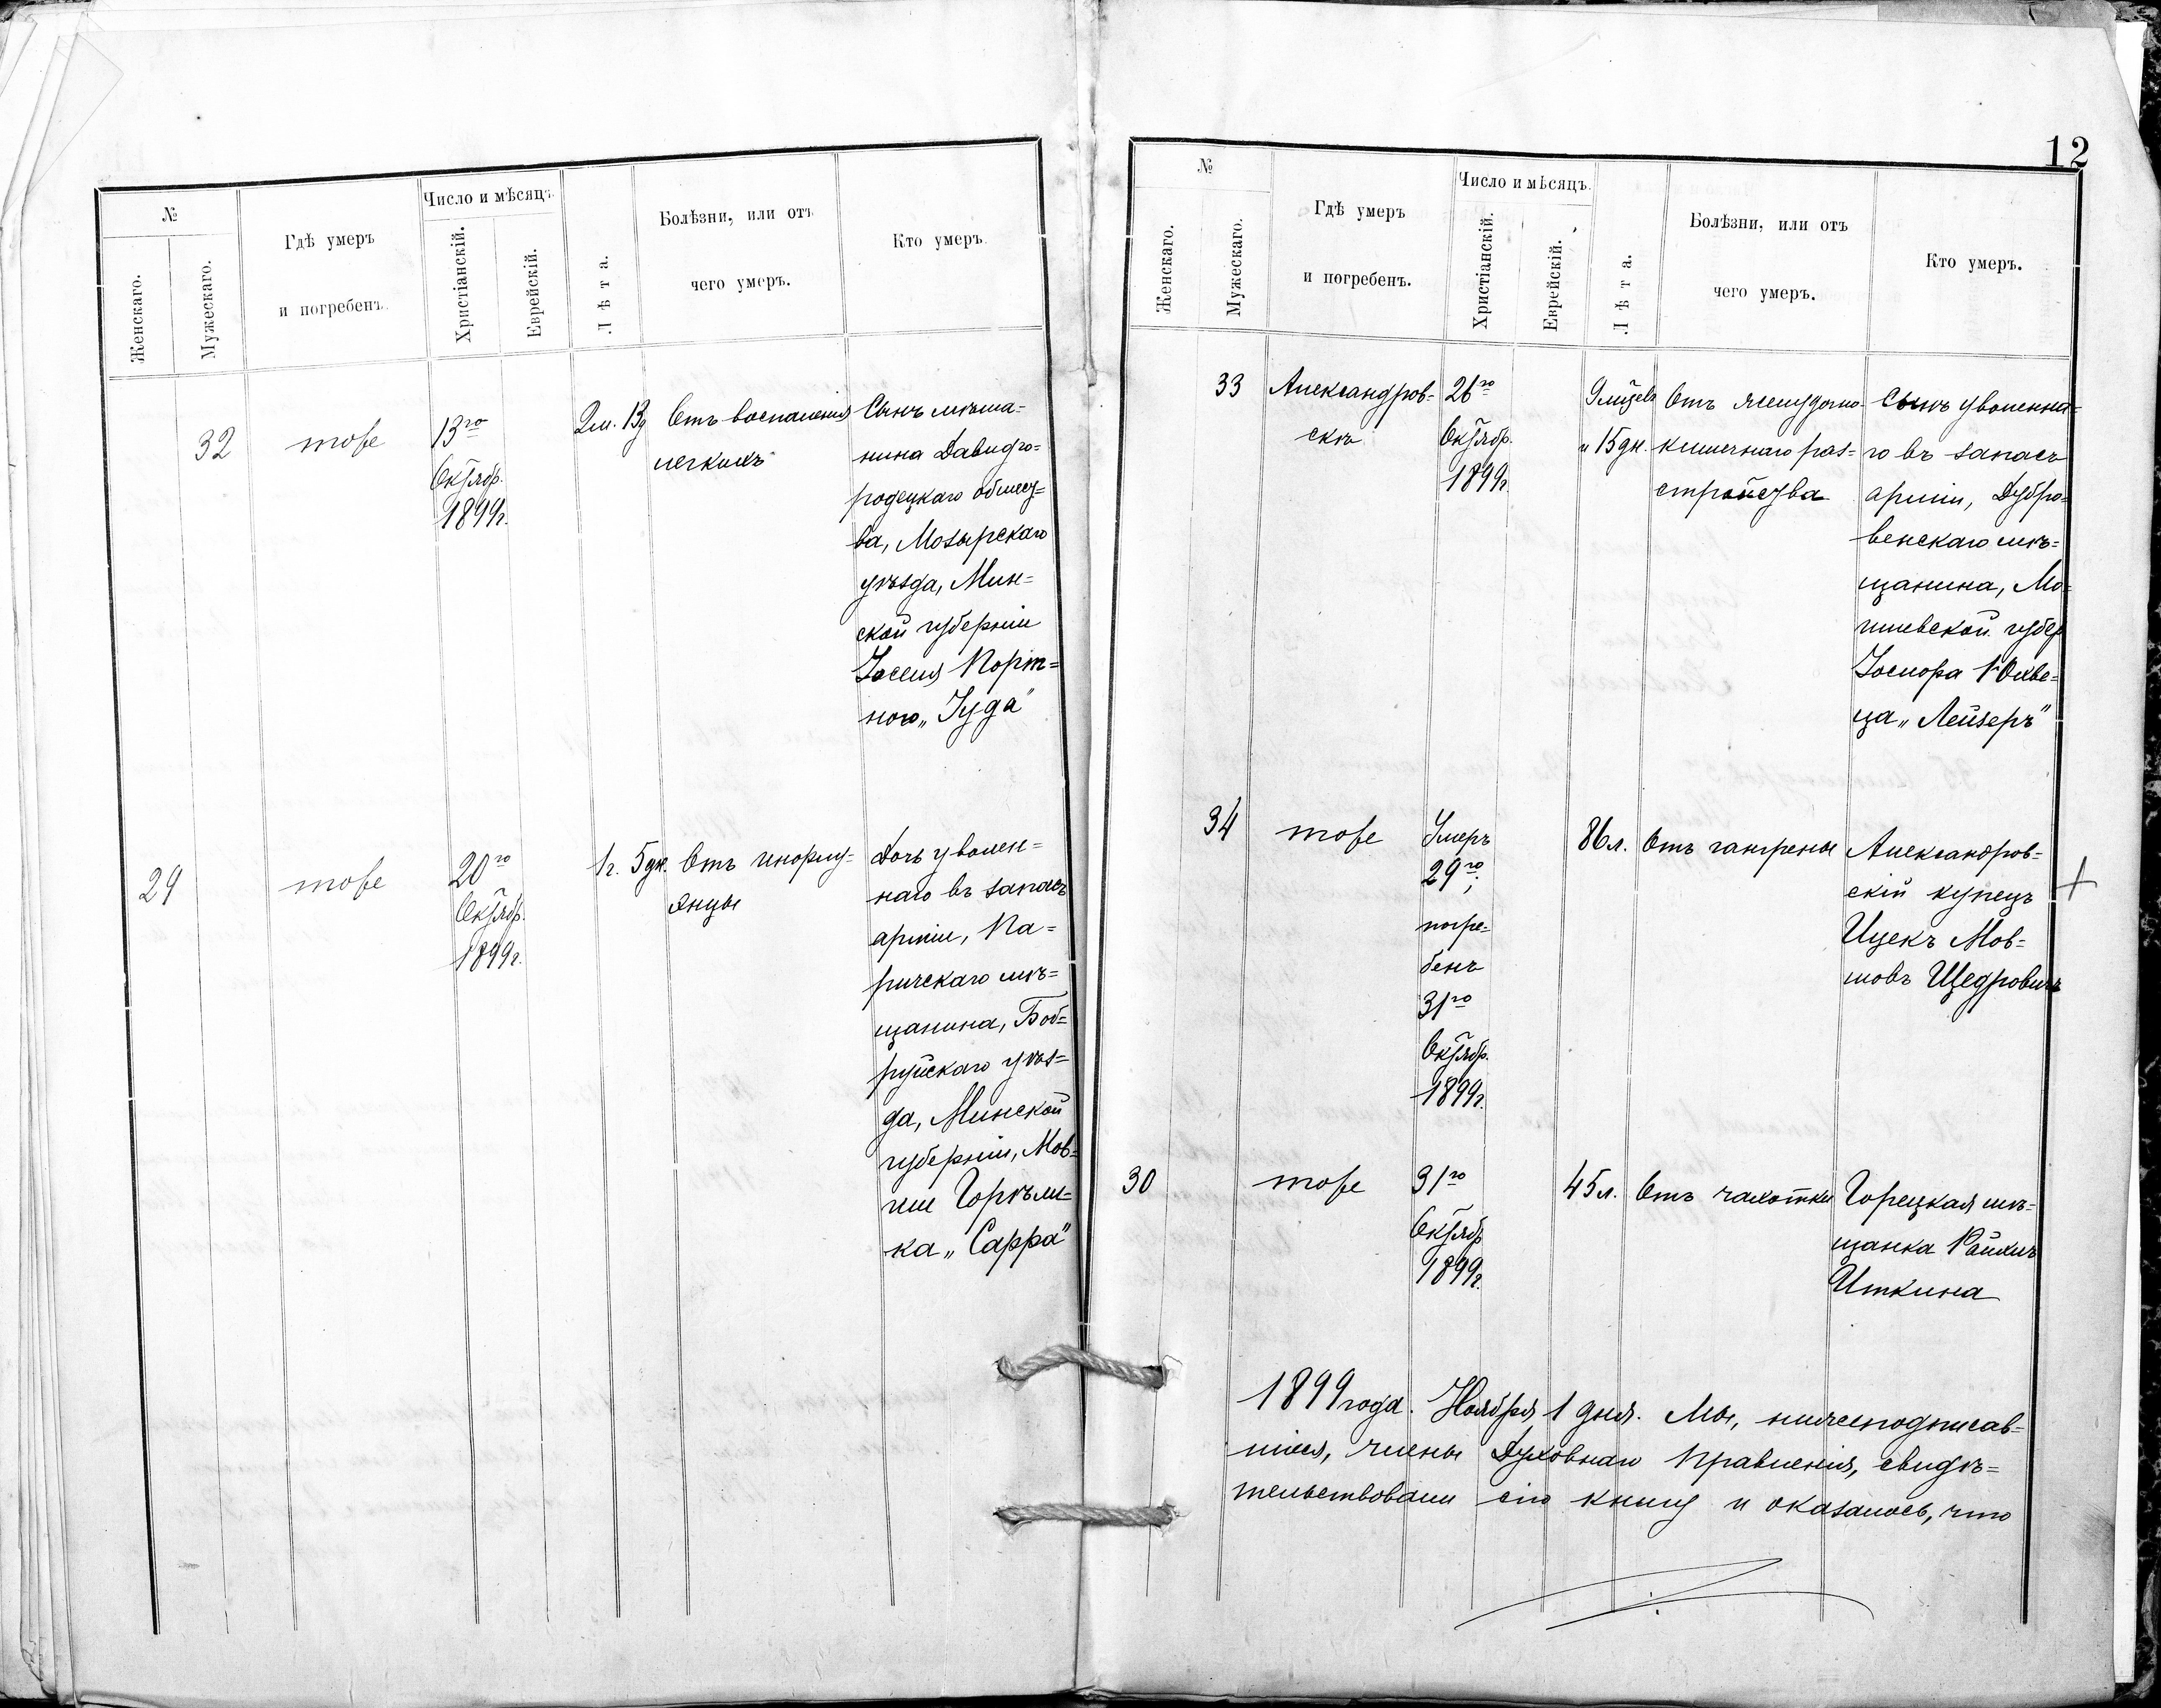 №
Женскаго.
Мужескаго.
Гдѣ умеръ
и погребенъ.
Число и мѣсяцъ.
Христіанскій.
Еврейскій.
Лѣта.
Болѣзни, или отъ
чего умеръ.
Кто умеръ.
32
тоже
13го
Октябр.
1899г.
2м. 13д
Отъ воспаленія
легкихъ
Сынъ мѣща=
нина Давидго=
родецкаго общест=
ва, Мозырскаго
уѣзда, Мин=
ской губерніи
Іоселя Порт=
ного „Іуда"
29
тоже
20го
Октябр.
1899г.
1г. 5дн.
Отъ инфлу=
энцы
Дочь уволен=
наго въ запасъ
арміи, Па=
ричскаго мѣ=
щанина, Боб=
руйскаго уѣз=
да, Минской
губерніи, Мов=
ши Горѣли=
ка „Сарра"
12
№
Женскаго.
Мужескаго.
Гдѣ умеръ
и погребенъ.
Число и мѣсяцъ.
Христіанскій.
Еврейскій.
Лѣта.
Болѣзни, или отъ
чего умеръ.
Кто умеръ.
33
Александров-
скъ
26го
Октябр.
1899г.
9
и 15дн.
Отъ желудочно-
кишечнаго раз=
стройства
Сынъ уволенна=
го въ запасъ
арміи, Дубро=
венскаго мѣ=
щанина, Мо=
гилевской губер
ца „Лейзеръ"
34
тоже
Умеръ
29го;
погре-
бенъ
31го
Октябр.
1899г.
86л.
Отъ гангрены
Александров=
скій купецъ
Ицекъ Мов=
шовъ Щедровичъ
30
тоже
31го
Октябр
1899г.
45л.
Отъ чахотки
Горецкая мѣ=
щанка
Иткина
1899 года. Ноября 1 дня. Мы, нижеподписав=
шіеся, члены Духовнаго Правленія, свидѣ=
тельствовали сію книгу и оказалось, что